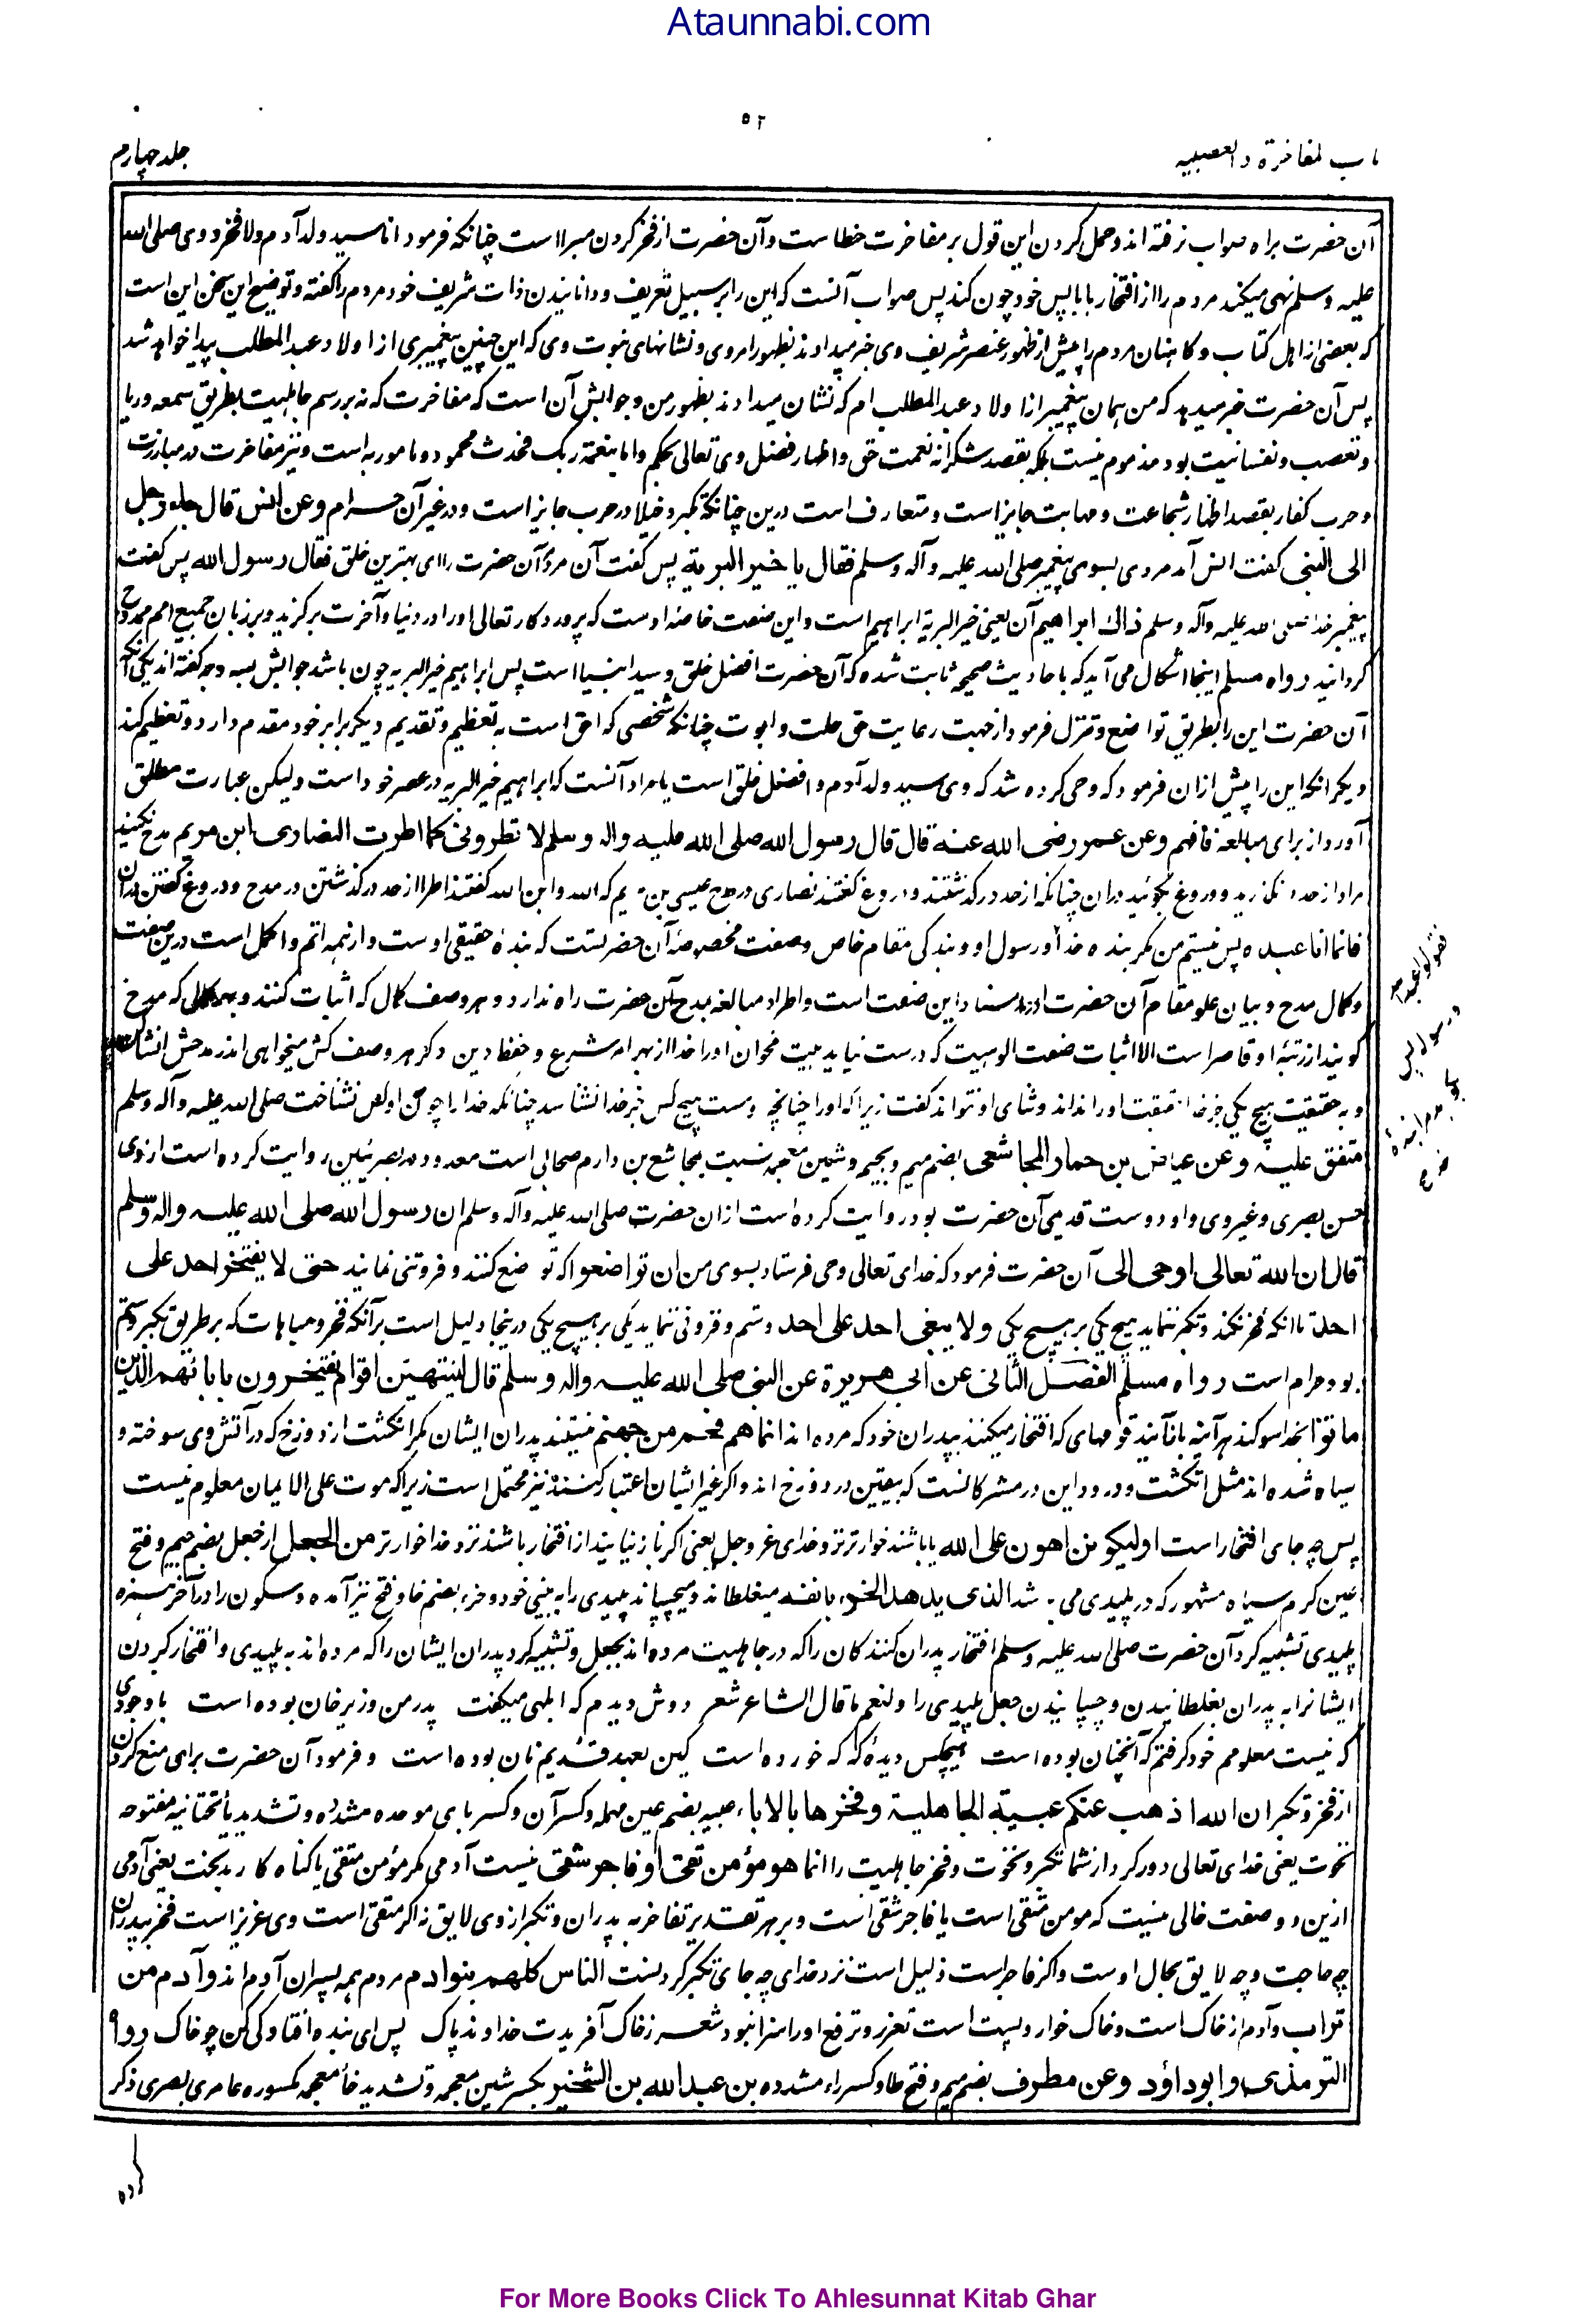 Ataunnabi.com
۵۲
باب المفاخرة والعصبية
جلد چهارم
آن حضرت براه صواب نرفته اند و حمل کردن این قول بر مفاخرت خطاست و آن حضرت از فخر کردن مبراست چنانکه فرمود انا سید ولد آدم ولا فخر و وی صلی الله
علیه وسلم نهی میکند مردم را از افتخار بآبا پس خود چون کند پس صواب آنست که این را بر سبیل تعریف و دانانیدن ذات شریف خود مردم را گفته و توضیح این سخن این است
که بعضی از اهل کتاب و کاهنان مردم را پیش از ظهور عنصر شریف وی خبر میدادند بظهور امر وی و نشانهای نبوت وی که این چنین پیغمبری از اولاد عبد المطلب پیدا خواهد شد
پس آن حضرت خبر میدهد که من همان پیغمبر از اولاد عبد المطلب ام که نشان میدادند بظهور من و جوابش آن است که مفاخرت که نه بر رسم جاهلیت بطریق سمعه و ریا
و تعصب و نفسانیت بود مذموم نیست بلکه بقصد شکرانه نعمت حق و اظهار فضل وی تعالی بحکم واما بنعمة ربک فحدث محمود و مامور به است و نیز مفاخرت در مبارزت
و حرب کفار بقصد اظهار شجاعت و مهابت جایز است و متعارف است درین چنانکه تکبر و خیلا در حرب جایز است و در غیر آن حرام وعن انس قال جاء رجل
الی النبی گفت انس آمد مردی بسوی پیغمبر صلی الله علیه و آله وسلم فقال یا خیر البریة پس گفت آن مرد آن حضرت را ای بهترین خلق فقال رسول الله پس گفت
پیغمبر خدا صلی الله علیه وآله وسلم ذاک ابراهیم آن یعنی خیر البریة ابراهیم است و این صفت خاصه اوست که پروردگار تعالی او را در دنیا و آخرت برگزید و بر زبان جمیع امم ممدوح
گردانید رواه مسلم اینجا اشکال می آید که باحادیث صحیحه ثابت شده که آن حضرت افضل خلق و سید انبیا است پس ابراهیم خیر البریه چون باشد جوابش بسه وجه گفته اند یکی آنکه
آن حضرت این را بطریق تواضع و تنزل فرمود از جهت رعایت حق خلت و ابوت چنانکه شخصی که احق است به تعظیم و تقدیم دیگر برابر خود مقدم دارد و تعظیم کند
دیگر آنکه این را پیش ازان فرمود که وحی کرده شد که وی سید ولد آدم و افضل خلق است یا مراد آنست که ابراهیم خیر البریه در عصر خود است ولیکن عبارت مطلق
آورد از برای مبالغه فافهم وعن عمر رضی الله عنه قال قال رسول الله صلی الله علیه واله وسلم لا تطرونی کما اطرت النصاری ابن مریم مدح نکنید
مرا و از حد نگذرید و دروغ نگوئید دران چنانکه از حد درگذشتند و دروغ گفتند نصاری در مدح عیسی بن مریم که الله و ابن الله گفتند اطرا از حد درگذشتن در مدح و دروغ گفتن دران
فانما انا عبده پس نیستم من مگر بنده خدا و رسول او و بندگی مقام خاص و صفت مخصوصه آن حضرتست که بنده حقیقی اوست و از همه اتم و اکمل است درین صفت
و کمال مدح و بیان علو مقام آن حضرت در اسناد این صفت است و اطرا و مبالغه بمدح آن حضرت راه ندارد و هر وصف کمال که اثبات کنند و بهر کمالی که مدح
گویند از رتبه او قاصر است الا اثبات صفت الوهیت که درست نیاید بیت مخوان او را خدا از بهر امر شرع و حفظ دین دگر هر وصف کش میخواهی اندر مدحش انشا کن
و به حقیقت هیچ یکی جز خدا حقیقت او را نداند و ثنای او نتواند گفت زیرا که او را چنانچه وست هیچ کس جز خدا نشناسد چنانکه خدا را چون او کس نشناخت صلی الله علیه وآله وسلم
متفق علیه وعن عیاض بن حمار المجاشعی بضم میم و بجیم و شین معجمه نسبت بمجاشع بن دارم صحابی است معدود در بصریین روایت کرده است از وی
حسن بصری و غیر وی و او دوست قدیمی آن حضرت بود روایت کرده است از ان حضرت صلی الله علیه وآله وسلم ان رسول الله صلی الله علیه واله وسلم
قال ان الله تعالی اوحی الی آن حضرت فرمود که خدای تعالی وحی فرستاد بسوی من ان تواضعوا که تواضع کنند و فروتنی نمایند حتی لا یفتخر احد علی
احد تا آنکه فخر نکند و تکبر ننماید هیچ یکی بر هیچ یکی ولا یبغی احد علی احد وستم و فزونی ننماید یکی بر هیچ یکی درینجا دلیل است برآنکه فخر و مباهات که بر طریق تکبر و ستم
بود حرام است رواه مسلم الفصل الثانی عن ابی هریرة عن النبی صلی الله علیه واله وسلم قال لینتهین اقوام یفتخرون بابائهم الذین
ماتوا بخدا سوگند هرآینه باز آیند قومهای که افتخار میکنند بپدران خود که مرده اند انما هم فحم من جهنم نیستند پدران ایشان مگر انگشت از دوزخ که در آتش وی سوخته و
سیاه شده اند مثل انگشت و درود این در مشرکانست که بیقین در دوزخ اند و اگر غیر ایشان اعتبار کنند نیز محتمل است زیرا که موت علی الایمان معلوم نیست
پس چه جای افتخار است او لیکونن اهون علی الله یا باشند خوارتر نزد خدای عز وجل یعنی اگر باز نیایند از افتخار باشند نزد خدا خوارتر من الجعل از جعل بضم جیم و فتح
عین کرم سیاه مشهور که در پلیدی می باشد الذی یدهده الخرء بانفه میغلطاند و میچسپاند پلیدی را به بینی خود و خرء بضم خا و فتح نیز آمده و سکون را در آخر همزه
پلیدی تشبیه کرد آن حضرت صلی الله علیه وسلم افتخار پدران کنندگان را که در جاهلیت مرده اند بجعل و تشبیه کرد پدران ایشان را که مرده اند به پلیدی و افتخار کردن
ایشانرا به پدران بغلطانیدن و چسپانیدن جعل پلیدی را ولنعم ما قال الشاعر شعر دوش دیدم که ابلهی میگفت پدر من وزیر خان بوده است باوجودی
که نیست معلومم خود گرفتم که آنچنان بوده است هیچکس دیده که که خورده است کین بعهد قدیم نان بوده است و فرمود آن حضرت برای منع کردن
از فخر و تکبر ان الله اذهب عنکم عبیة الجاهلیة وفخرها بالاباء عبیه بضم عین مهمله و کسر آن و کسر بای موحده مشدده و تشدید یا تحتانیه مفتوحه
نخوت یعنی خدای تعالی دور کرد از شما تکبر و نخوت و فخر جاهلیت را انما هو مؤمن تقی او فاجر شقی نیست آدمی مگر مؤمن متقی یا گناه کار بدبخت یعنی آدمی
ازین دو صفت خالی نیست که مومن متقی است یا فاجر شقی است و بر هر تقدیر تفاخر به پدران و تکبر از وی لایق نه اگر متقی است وی عزیز است فخر بپدران
چه حاجت و چه لایق بحال اوست و اگر فاجر است ذلیل است نزد خدای چه جای تکبر کردنست الناس کلهم بنو ادم مردم همه پسران آدم اند وآدم من
تراب وآدم از خاک است و خاک خوار و پست است تعزز و ترفع او را سزا نبود شعر ز خاک آفریدت خداوند پاک پس ای بنده افتادگی کن چو خاک رواه
الترمذی وابوداؤد وعن مطرف بضم میم و فتح طا و کسر راء مشدده بن عبد الله بن الشخیر بکسر شین معجمه و تشدید خا معجمه مکسوره عامری بصری ذکر
کرده
For More Books Click To Ahlesunnat Kitab Ghar